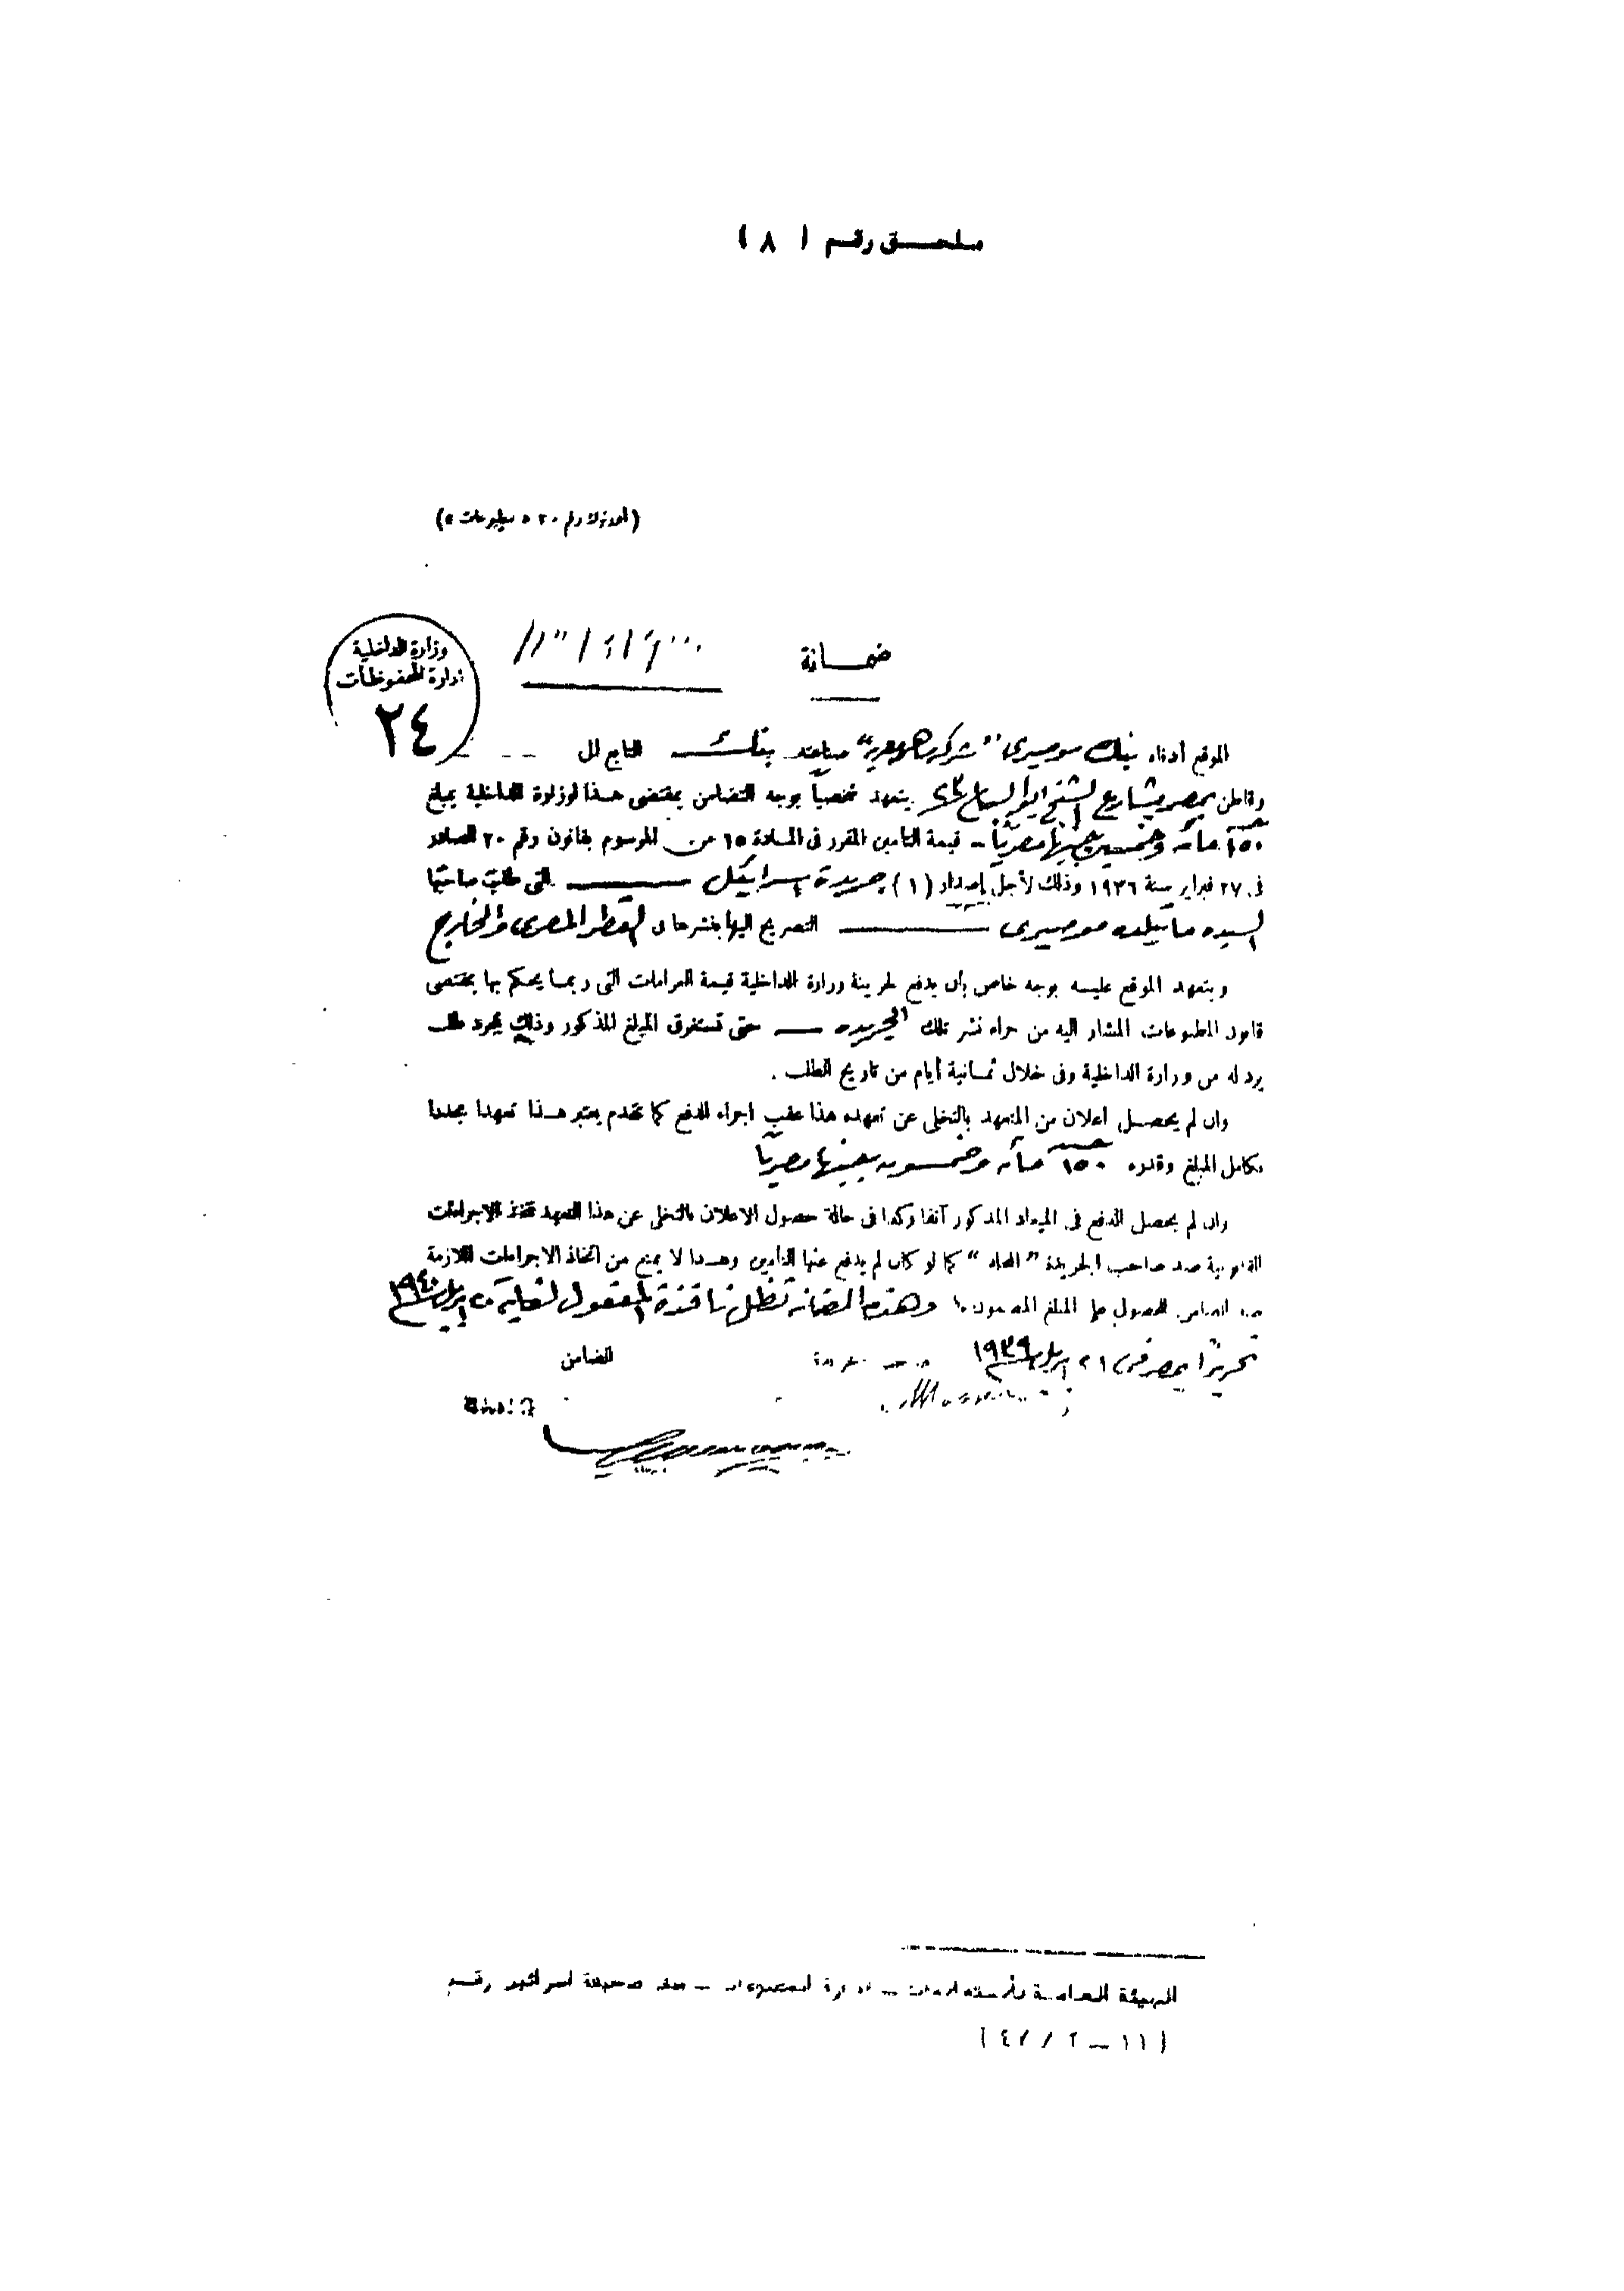 ملحق رقم ( ٨ )
ضمانة
وزارة الداخلية
إدارة المحفوظات
٢٤
الموقع أدناه بنك موصيرى "شركة مصرية" صناعته بنك التابع لل
وقاطن بمصر بشارع الشيخ ابو السباع يتعهد شخصياً بوجه التضامن بمقتضى هذا لوزارة الداخلية بمبلغ
١٥٠ مائة وخمسين جنيها مصرياً - قيمة التأمين المقرر فى المادة ١٥ من المرسوم بقانون رقم ٢٠ الصادر
فى ٢٧ فبراير سنة ١٩٣٦ وذلك لأجل إصدار (١) جريدة إسرائيل التى طلب صاحبها
السيده ماتيلده موصيرى التصريح اليها بنشرها فى القطر المصرى والخارج
ويتعهد الموقع عليه بوجه خاص بأن يدفع لخزينة وزارة الداخلية قيمة الغرامات التى ربما يحكم بها بمقتضى
قانون المطبوعات المشار اليه من جراء نشر تلك الجريده حتى تستغرق المبلغ المذكور وذلك بمجرد طلب
يرد له من وزارة الداخلية وفى خلال ثمانية أيام من تاريخ الطلب .
وان لم يحصل اعلان من المتعهد بالتخلى عن تعهده هذا عقب اجراء الدفع كما تقدم يعتبر هذا تعهدا مجددا
بكامل المبلغ وقدره ١٥٠ مائة وخمسون جنيها مصرياً
وان لم يحصل الدفع فى الميعاد المذكور آنفا وكذا فى حالة حصول الاعلان بالتخلى عن هذا التعهد تتخذ الاجراءات
القانونية ضد صاحب الجريدة كما لو كان لم يدفع عنها التأمين وهذا لا يمنع من اتخاذ الاجراءات اللازمة
ضد الضامن للحصول على المبلغ المضمون به وهذه الضمانة تظل نافذة المفعول لغاية ٢٠ ابريل ١٩٤٠
تحريراً بمصر فى ٢١ ابريل ١٩٣٩
الضامن
الهيئة العامة للاستعلامات - ادارة المطبوعات - ملف صحيفة اسرائيل رقم